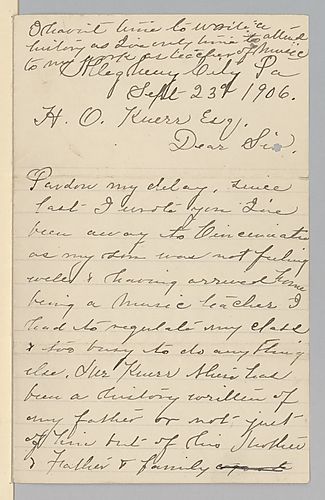 I havn't time to write a
history as I've only time to attend
to my work as teacher of music
Allegheny City Pa
Sept 23d 1906.
H. O. Knerr Esq.
Dear Sir.
Pardon my delay, since
last I wrote you I've
been away to Cincinnati
as my son was not feeling
well & having arrived home
being a Music teacher I
had to regulate my class
& too busy to do anything
else. Mr Knerr there has
been a history written of
my father or not just
of him but of his Mother
& Father & family